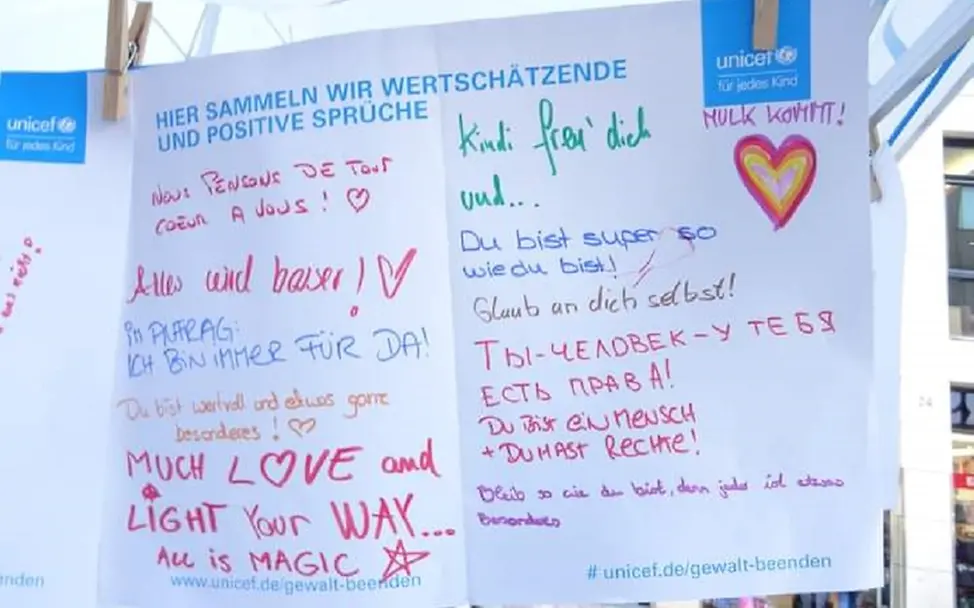 unicef
für jedes Kind
HIER SAMMELN WIR WERTSCHÄTZENDE
UND POSITIVE SPRÜCHE
NOUS PENSONS DE TOUT
COEUR A VOUS! ♡
Alles wird besser! ♡
IM AUFTRAG:
ICH BIN IMMER FÜR DA!
Du bist wertvoll und etwas ganz
besonderes! ♡
MUCH LOVE and
LIGHT YOUR WAY...
ALL is MAGIC ☆
www.unicef.de/gewalt-beenden
unicef
für jedes Kind
KOMMT!
Kindi freu' dich
und...
Du bist super so
wie du bist!
Glaub an dich selbst!
ТЫ-ЧЕЛОВЕК-У ТЕБЯ
ЕСТЬ ПРАВА!
DU BIST EIN MENSCH
+ DU HAST RECHTE!
Bleib so wie du bist, denn jeder ist etwas
Besonderes
# unicef.de/gewalt-beenden
enden